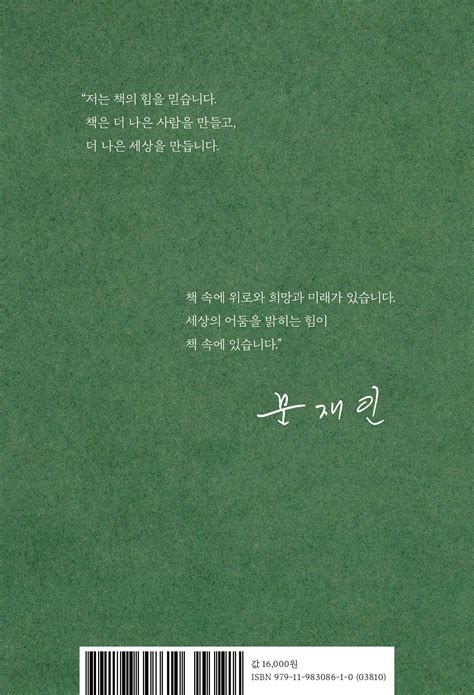 “저는 책의 힘을 믿습니다.
책은 더 나은 사람을 만들고,
더 나은 세상을 만듭니다.
책 속에 위로와 희망과 미래가 있습니다.
세상의 어둠을 밝히는 힘이
책 속에 있습니다.”
문재인
값 16,000원
ISBN 979-11-983086-1-0 (03810)